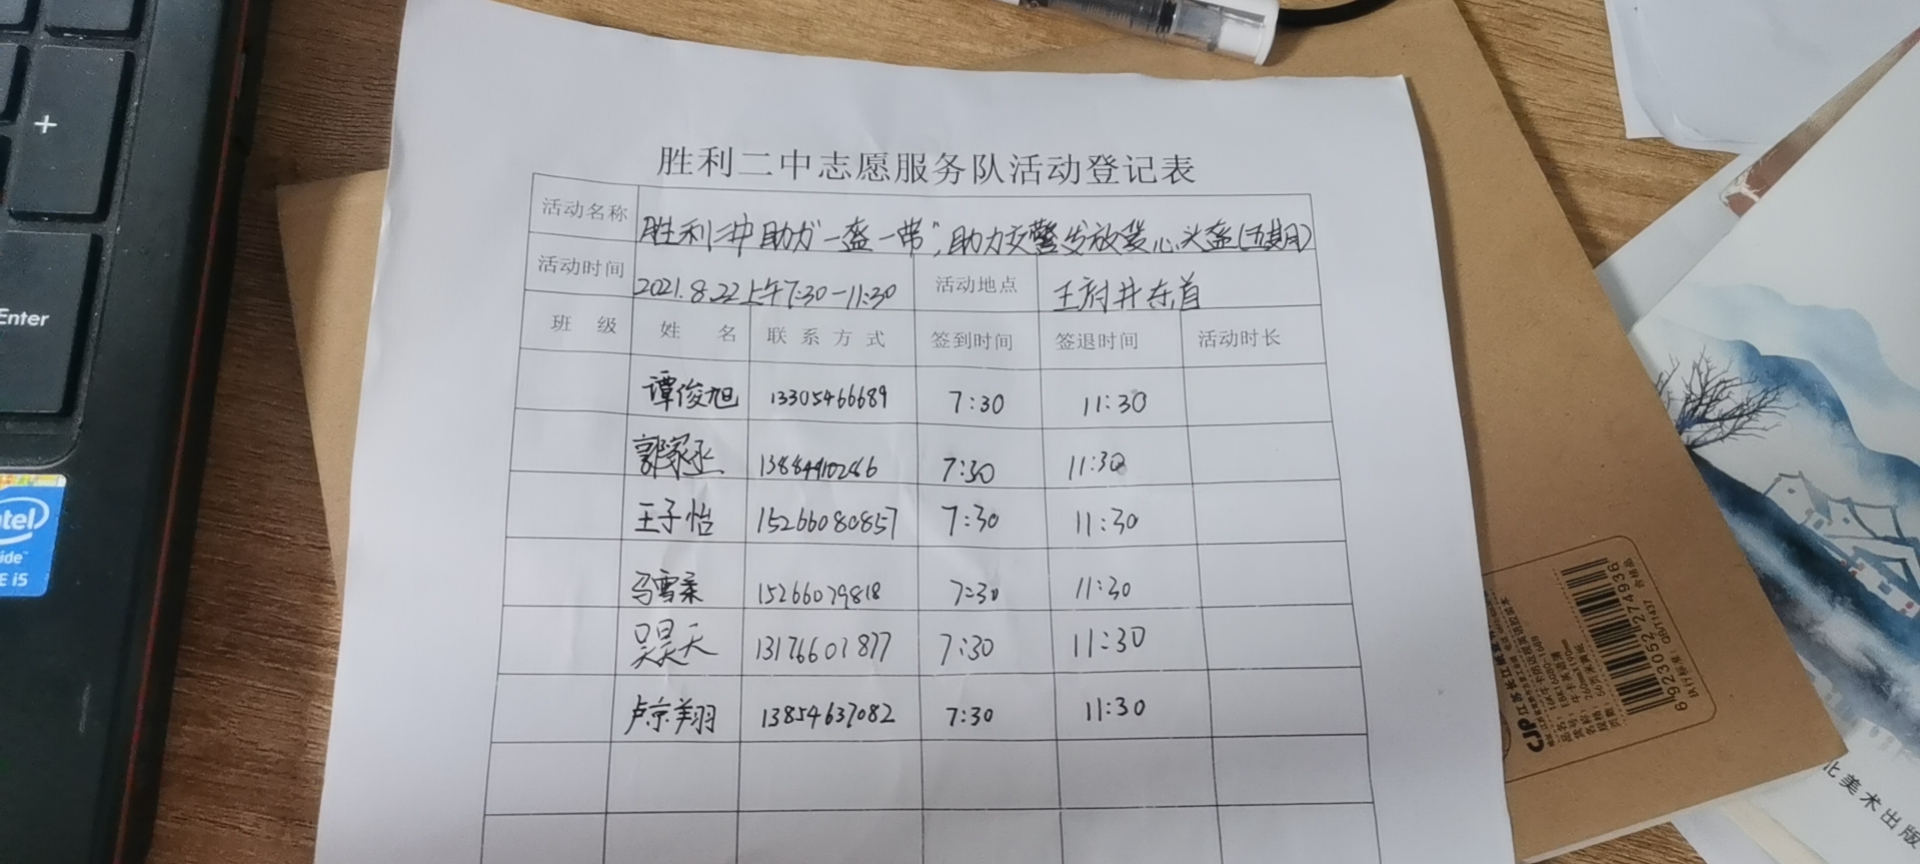 胜利二中志愿服务队活动登记表
活动名称 胜利二中助力“一盔一带”,助力交警发放爱心头盔(五期)
活动时间 2021.8.22上午7:30-11:30 活动地点 王府井东首
班 级 姓 名 联 系 方 式 签到时间 签退时间 活动时长
谭俊旭 13305466689 7:30 11:30
郭家丞 7:30 11:30
王子怡 15266080857 7:30 11:30
马雪柔 15266079818 7:30 11:30
吴昊天 13176601877 7:30 11:30
卢京翔 13854637082 7:30 11:30
+
Enter
intel
i5
CJP
6 923052 274936
合格品
QB/T1437
北美术出版